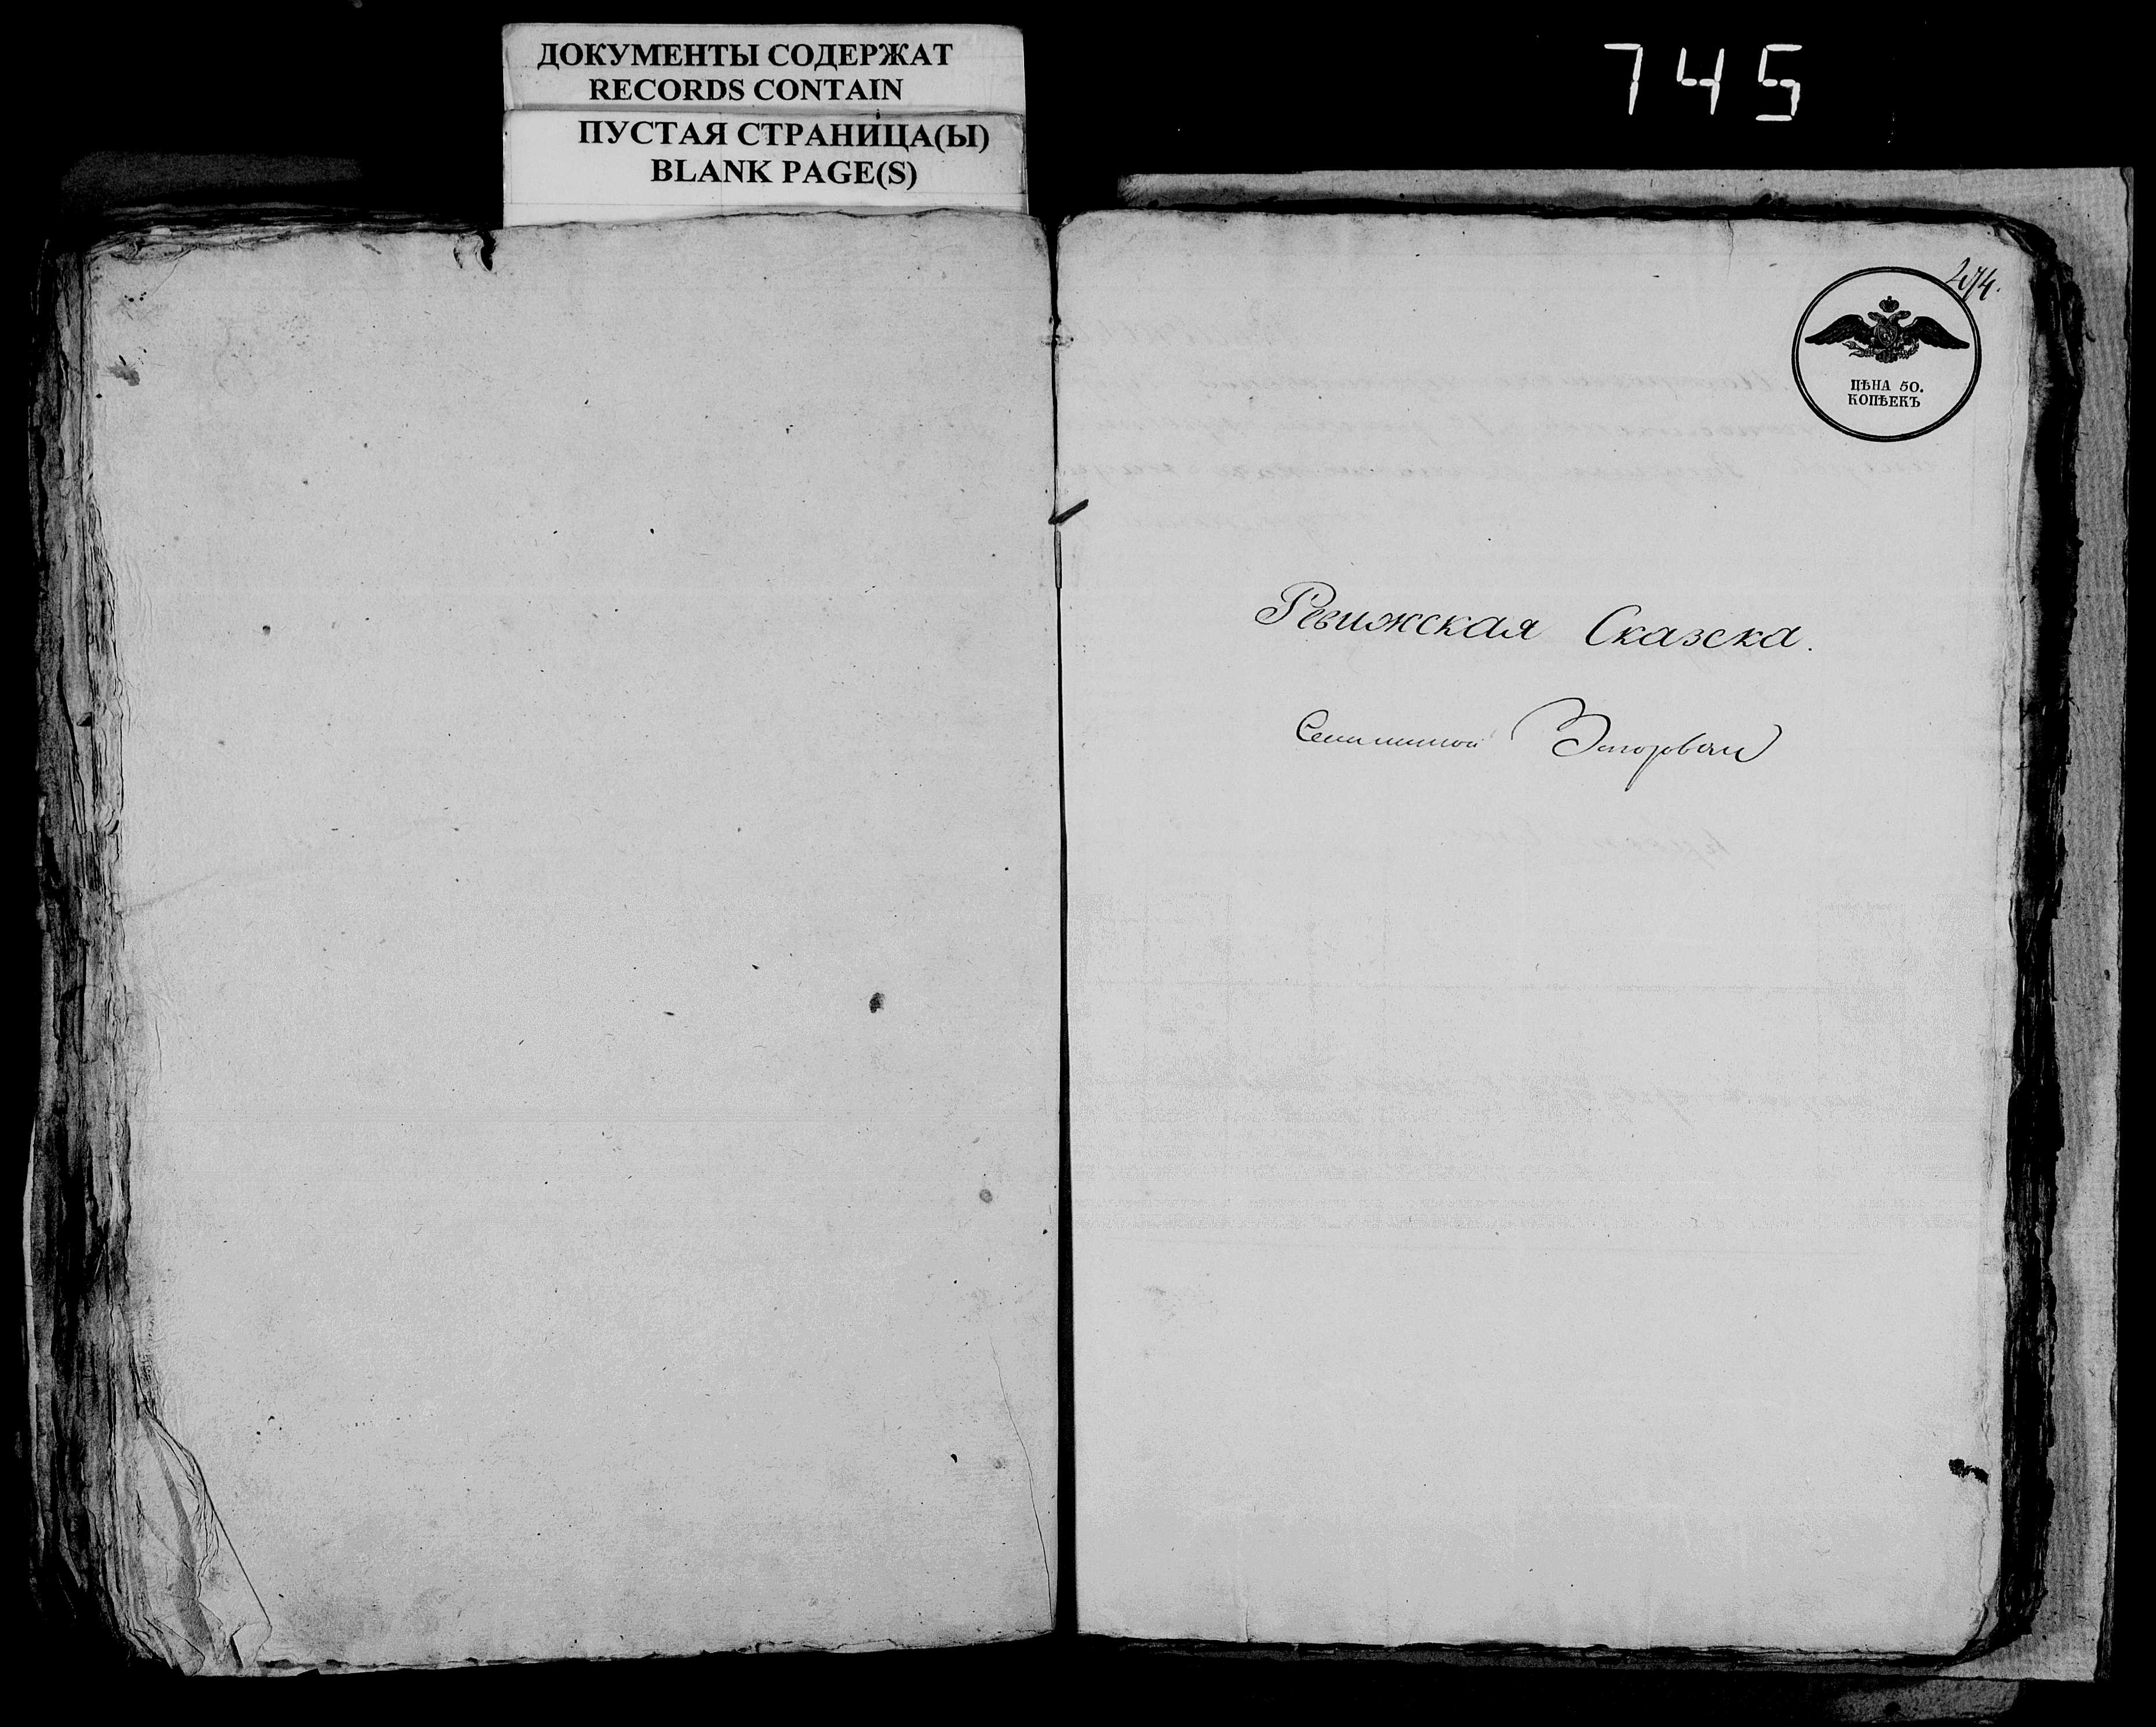 ДОКУМЕНТЫ СОДЕРЖАТ
RECORDS CONTAIN
ПУСТАЯ СТРАНИЦА(Ы)
BLANK PAGE(S)
745
274.
ЦѢНА 50.
КОПѢЕКЪ
Ревижская Сказска.